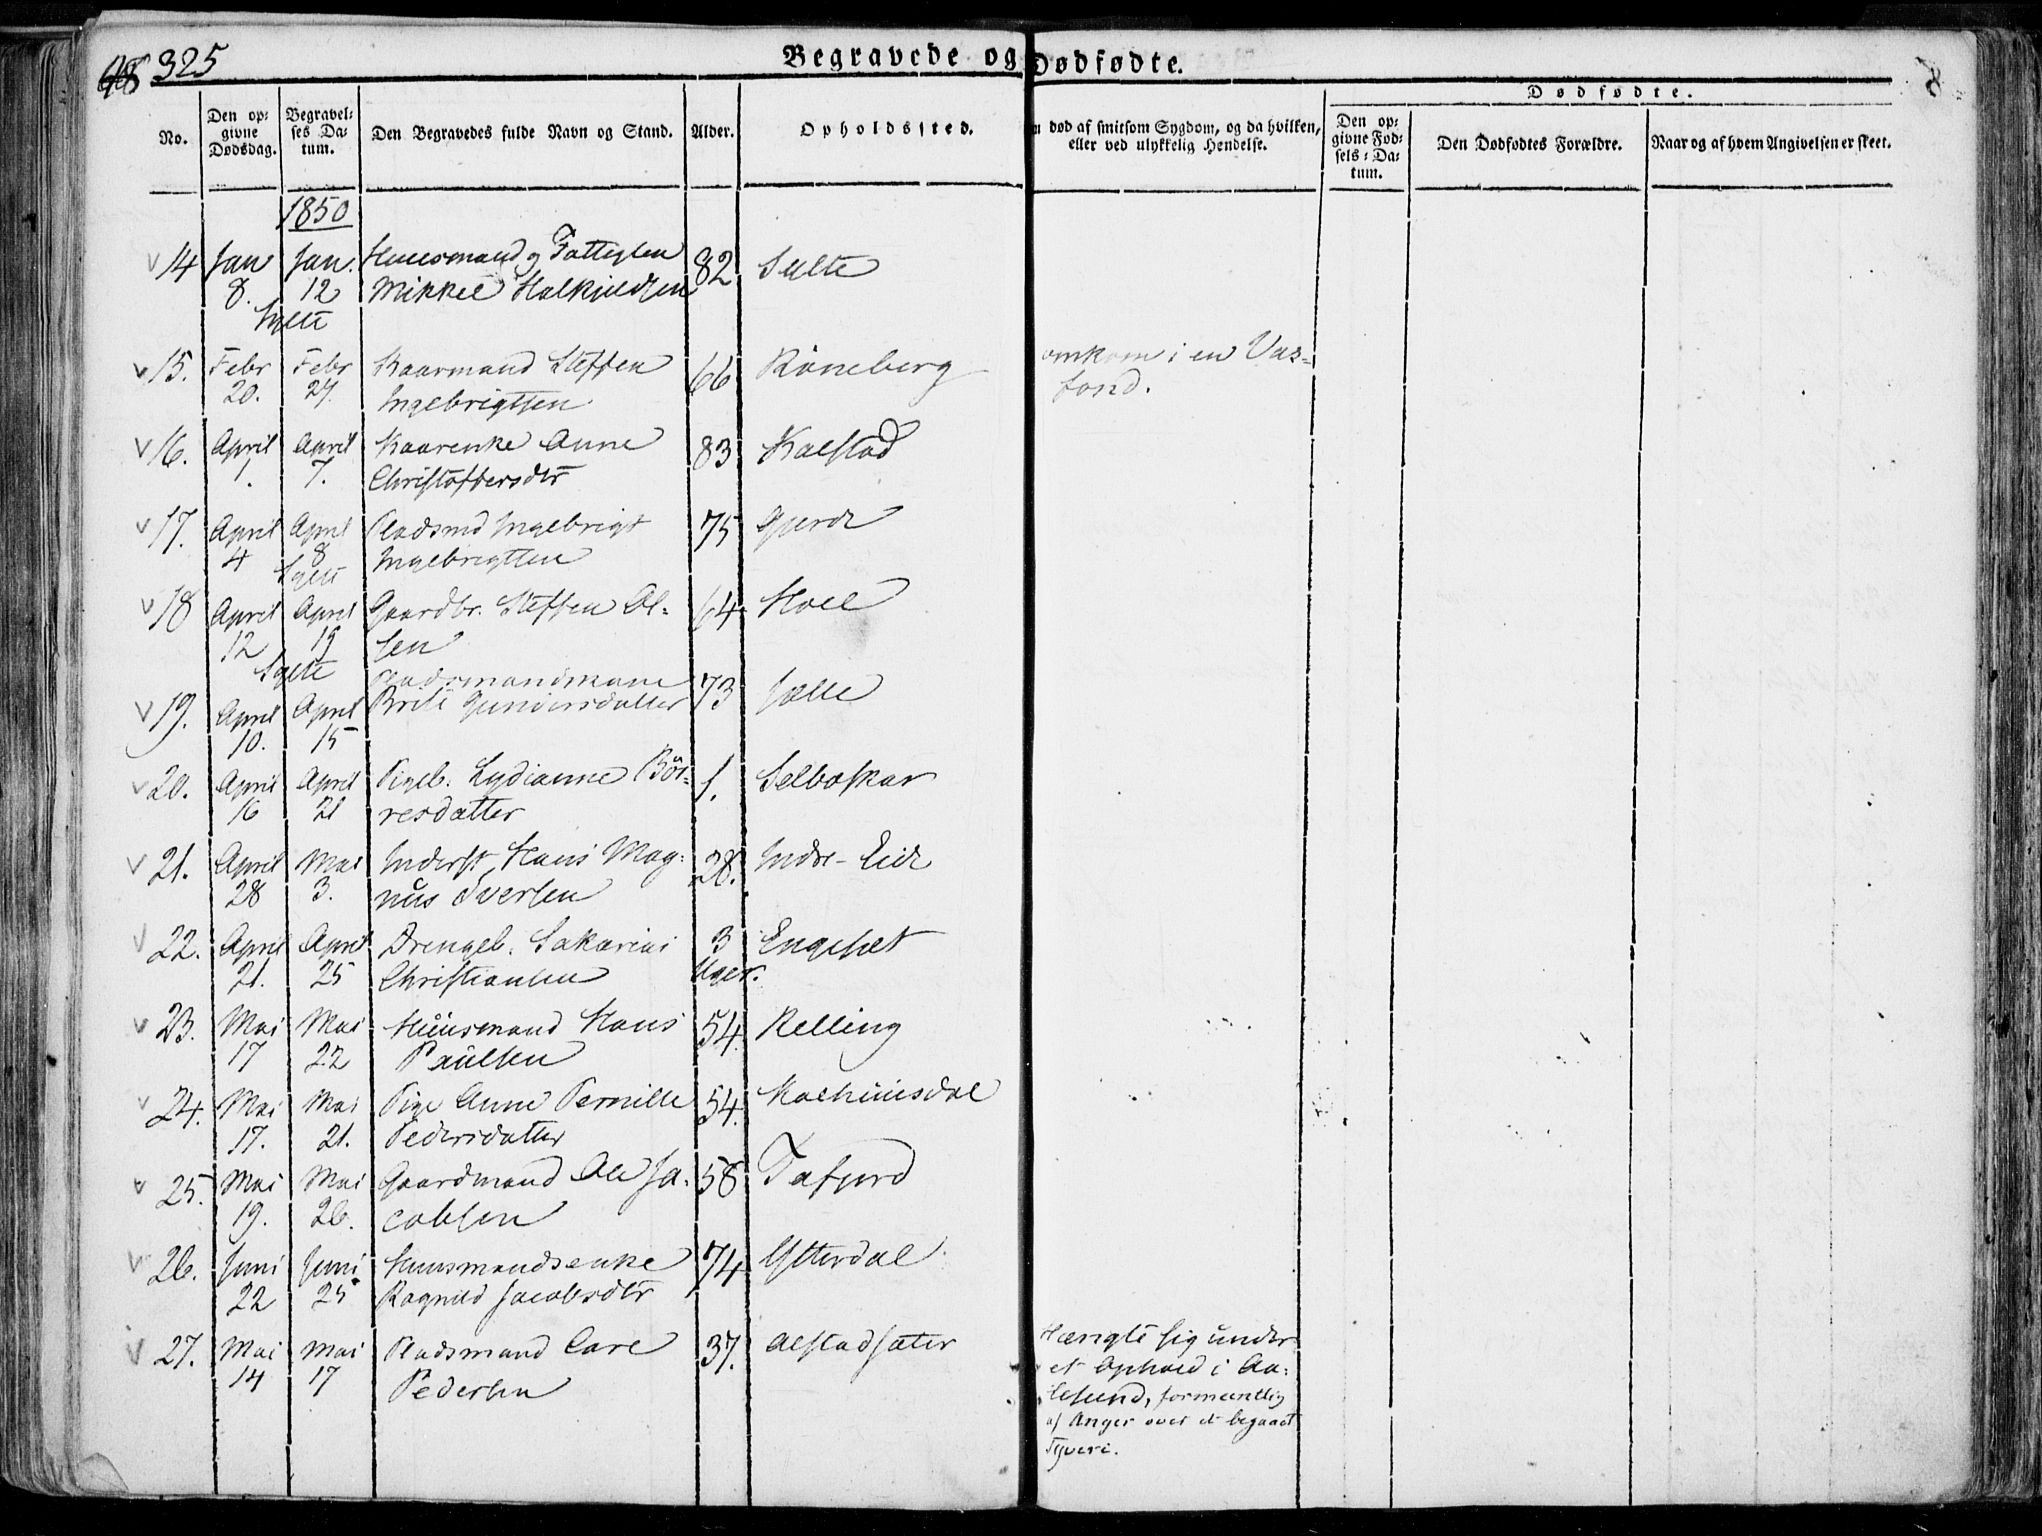 48 325
Begravede og Dødfødte.
8
No.
Den op-
givne
Dødsdag.
Begravel-
ses Da-
tum.
Den Begravedes fulde Navn og Stand.
Alder.
Opholdssted.
død af smitsom Sygdom, og da hvilken,
eller ved ulykkelig Hendelse.
Dødfødte.
Den op-
givne Fød-
sels-Da-
tum.
Den Dødfødtes Forældre.
Naar og af hvem Angivelsen er skeet.
1850
14 Jan Jan. Huusmand og 82 Sulte
8. 12 Mikkel
Sylte
15. Febr Febr Kaarmand Steffen 66 Røneberg omkom i en Vas-
20. 27. Ingebrigtsen fond.
16. April April Kaarenke Anne 83 Kalstad
1. 7. Christoffersdtr
17. April April Pladsmd Ingebrigt 75 Gjerde
4 8 Ingebrigtsen
Sylte
18 April April Gaardbr. Steffen Ol- 64 Hoel
12 19 sen
Sylte Pladsmandskone
19. April April Brite Gundersdatter 73 Jølle
10. 15
20. April April Pigeb. Lydianne Bør- 1. Selboskar
16 21 resdatter
21. April Mai Inderst Hans Mag- 28. Indre-Eide
28 3. nus Iversen
22. April April Drengeb. Sakarias 3 Engeset
21. 25 Christiansen Uger.
23. Mai Mai Huusmand Hans 54. Relling
17 22 Paulsen
24. Mai Mai Pige Anne Pernille 54. Kalhuusdal
17. 21. Pedersdatter
25. Mai Mai Gaardmand Ole Ja- 58 Tafjord
19. 26. cobsen
26. Juni Juni Huusmandsenke 74 Ytterdal
22 25 Ragnild Jacobsdtr
27. Mai Mai Pladsmand Carl 37. Alstadsæter Hængte sig under
14 17 Pedersen et Ophold i Aa-
lesund, formeentlig
af Anger over et begaaet
Tyveri.